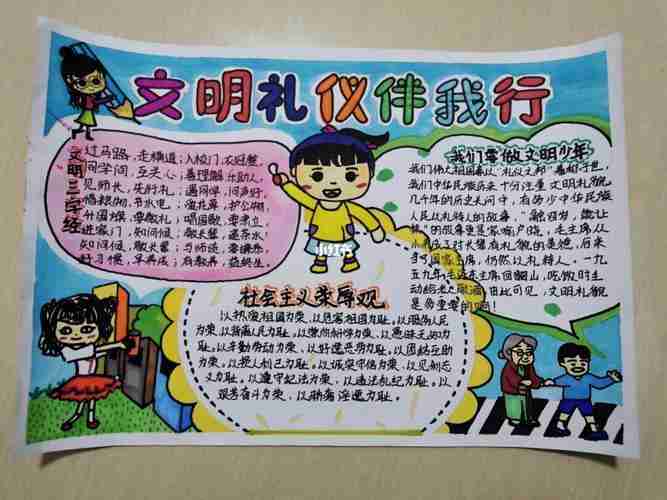 文明礼仪伴我行
文明三字经
过马路,走横道;入校门,衣冠整,
同学间,互关心;善理解,乐助人,
见师长,先行礼;遇同学,问声好,
惜粮物,节水电;
升国旗,要敬礼;唱国歌,要肃立,
进家门,知问候;敬长辈,递茶水,
知问候,敬长辈;习师说,要
好习惯,早养成;有教养,益终生。
我们要做文明少年
我们伟大祖国素以“礼仪之邦”著称于世,
我们中华民族历来十分注重文明礼貌,
几千年的历史长河中,有多少中华民族
人民以礼待人的故事,“融四岁,能让
梨”的故事更是家喻户晓,毛主席从
小养成了对长辈有礼貌的美德,后来
当了国家主席,仍然以礼待人,一九
五九年,毛泽东主席回韶山,吃饭时主
动给老人敬酒,由此可见,文明礼貌
是多重要的啊!
小红书
社会主义荣辱观
以热爱祖国为荣、以危害祖国为耻,以服务人民
为荣、以背离人民为耻,以崇尚科学为荣、以愚昧无知为
耻,以辛勤劳动为荣、以好逸恶劳为耻,以团结互助
为荣、以损人利己为耻,以诚实守信为荣、以见利忘
义为耻,以遵守纪法为荣、以违法乱纪为耻,以
艰苦奋斗为荣、以骄奢淫逸为耻。